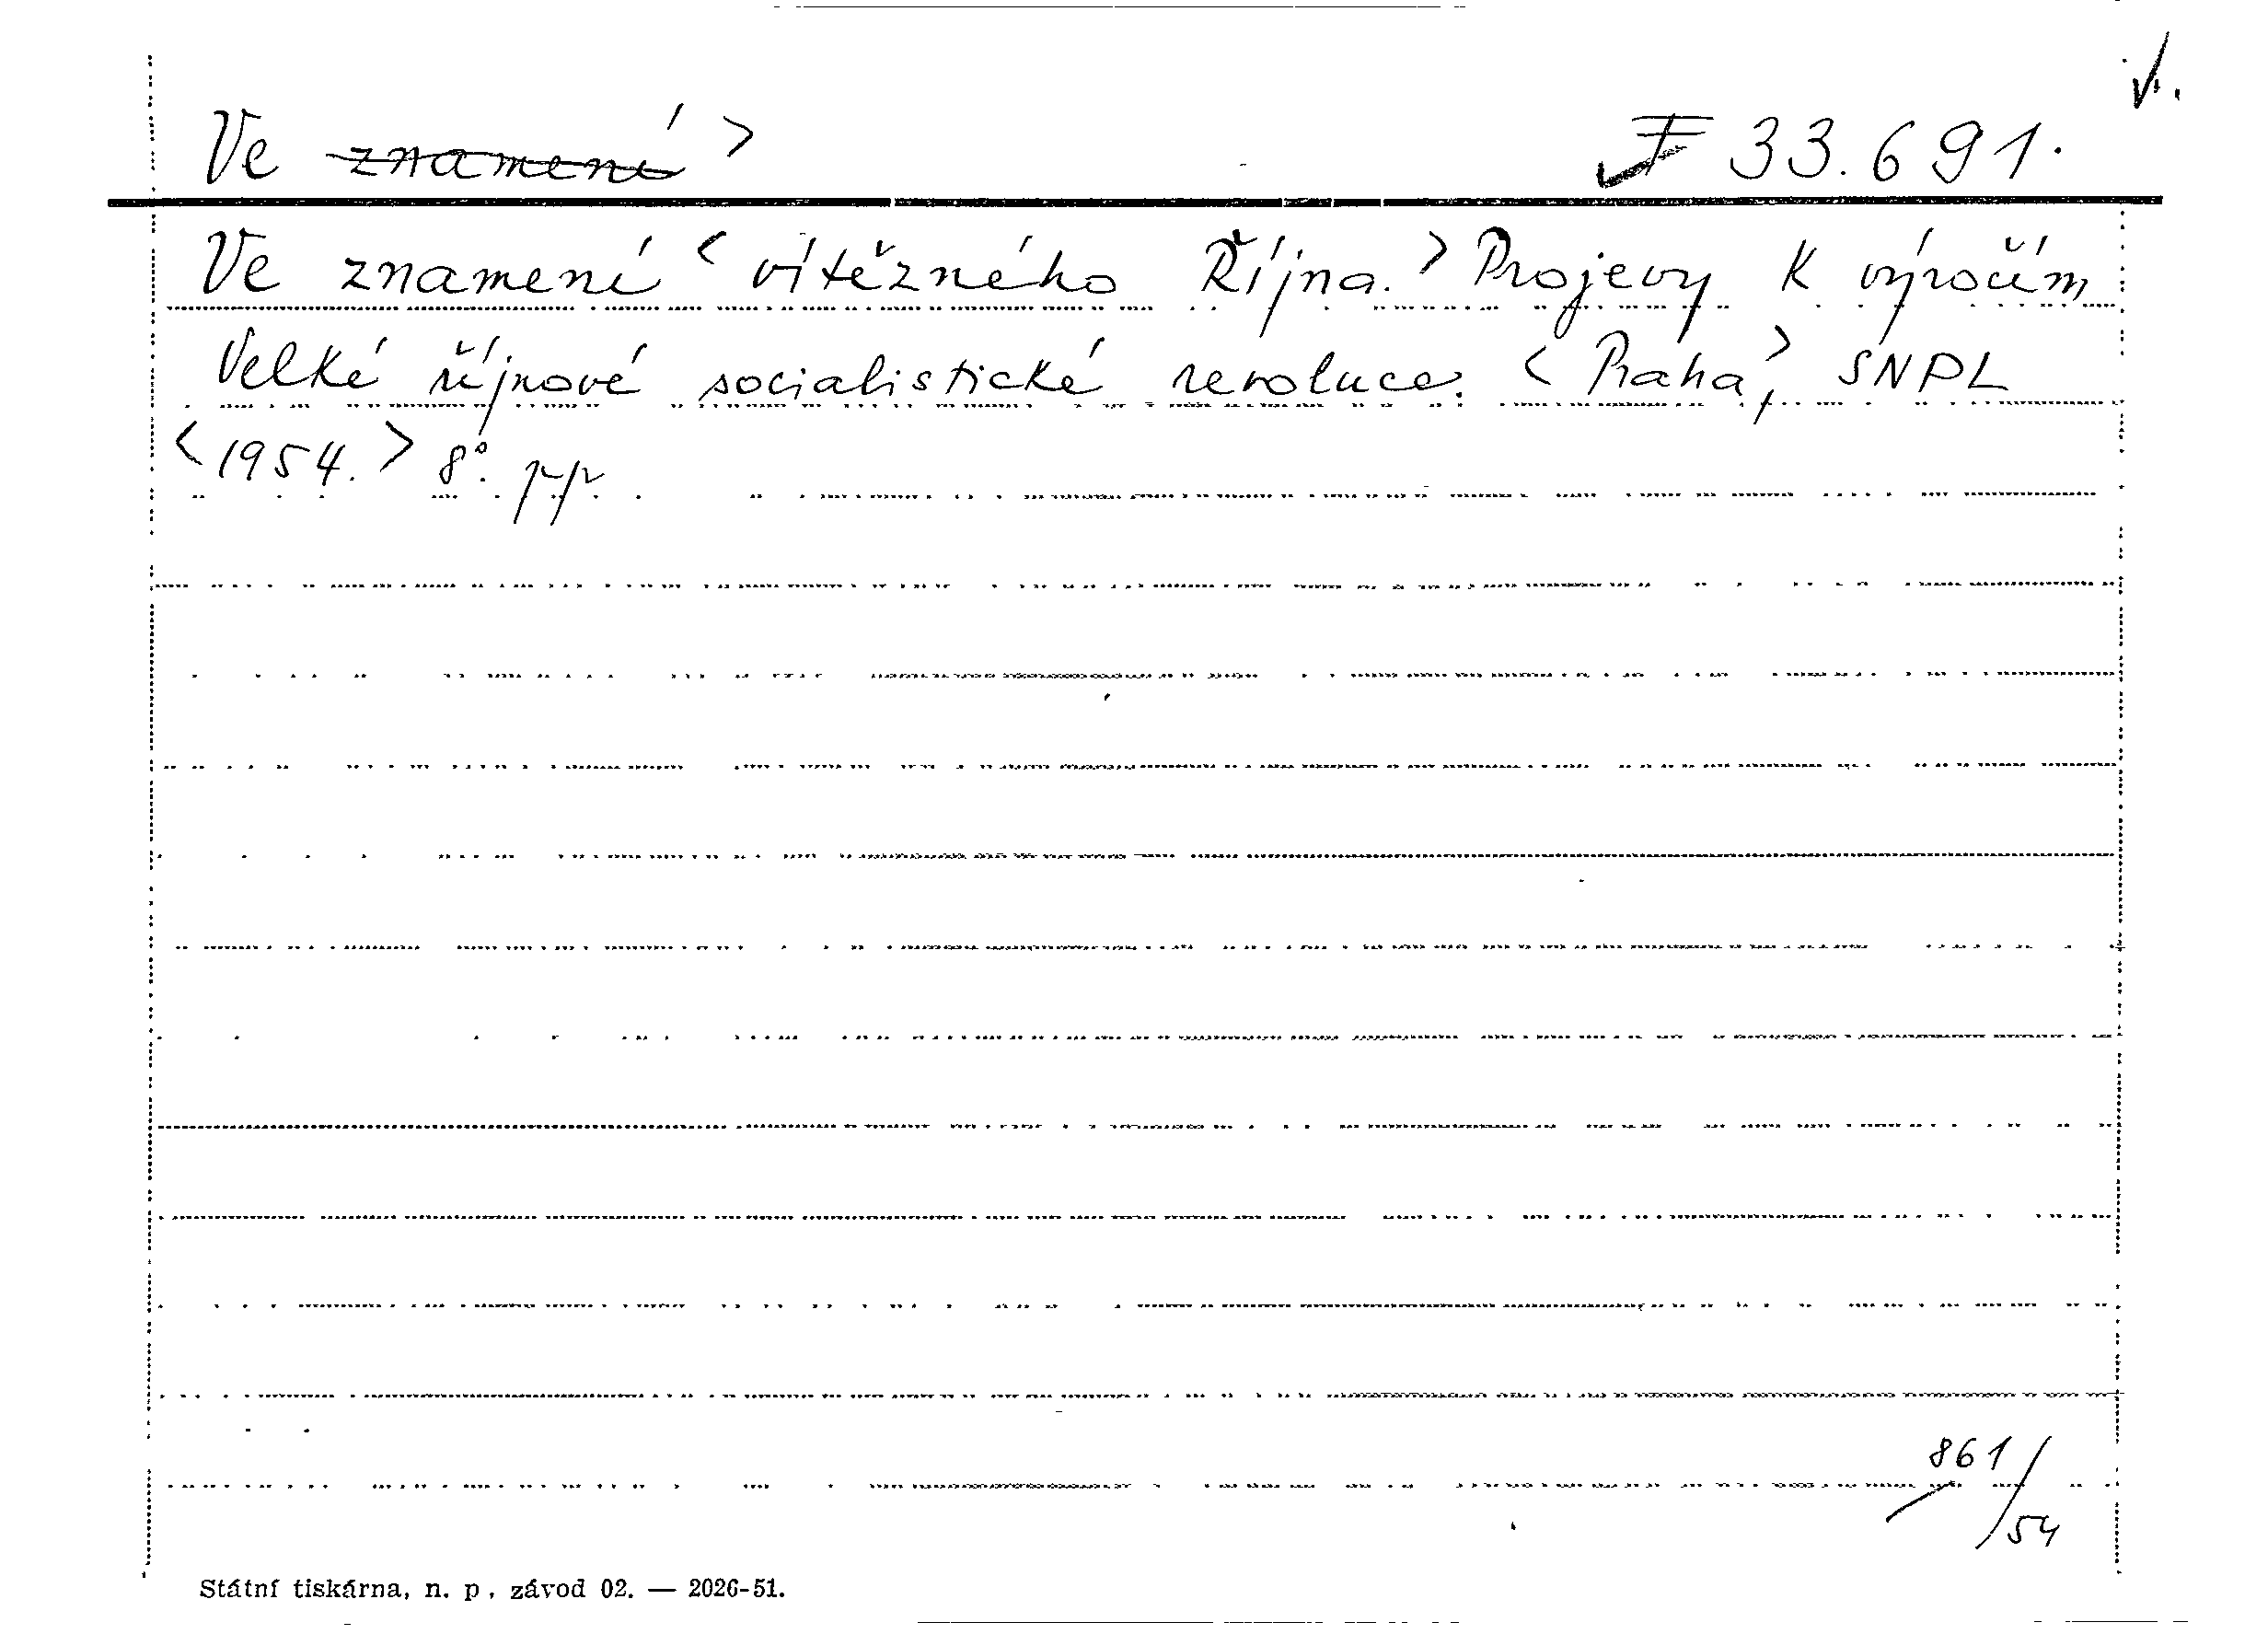 V.
Ve znamení > F 33.691.
Ve znamení < vítězného Října. > Projevy k výročím
Velké říjnové socialistické revoluce. < Praha, > SNPL
< 1954. > 8°. pp.
861/54
Státní tiskárna, n. p., závod 02. — 2026-51.